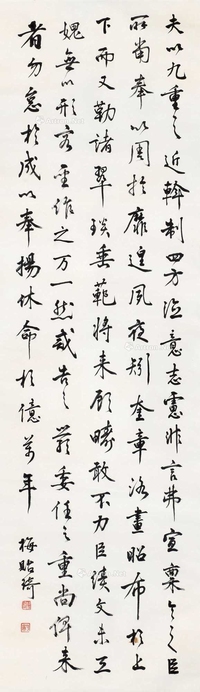 夫以九重之近斡制四方治意志慮非言弗宣稟令之臣
所當奉以周旋靡遑夙夜矧奎章洛畫昭布於上
下而又勒諸翠琰垂範將來顧疇敢不力臣績文未工
媿無以形容聖作之万一然感告之嚴委任之重尚俾來
者勿怠於成以奉揚休命於億萬年
梅貽琦